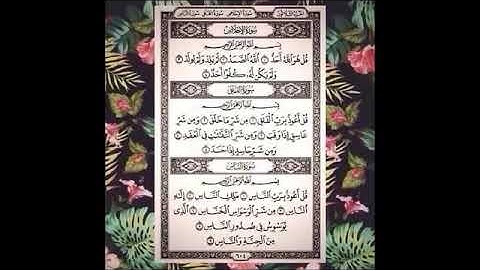 سورة الإخلاص سورة الفلق سورة الناس
سُورَةُ الإِخْلَاصِ
بِسْمِ اللَّهِ الرَّحْمَٰنِ الرَّحِيمِ
قُلْ هُوَ اللَّهُ أَحَدٌ ١ اللَّهُ الصَّمَدُ ٢ لَمْ يَلِدْ وَلَمْ يُولَدْ ٣
وَلَمْ يَكُن لَّهُ كُفُوًا أَحَدٌ ٤
سُورَةُ الْفَلَقِ
بِسْمِ اللَّهِ الرَّحْمَٰنِ الرَّحِيمِ
قُلْ أَعُوذُ بِرَبِّ الْفَلَقِ ١ مِن شَرِّ مَا خَلَقَ ٢ وَمِن شَرِّ
غَاسِقٍ إِذَا وَقَبَ ٣ وَمِن شَرِّ النَّفَّٰثَٰتِ فِي الْعُقَدِ ٤
وَمِن شَرِّ حَاسِدٍ إِذَا حَسَدَ ٥
سُورَةُ النَّاسِ
بِسْمِ اللَّهِ الرَّحْمَٰنِ الرَّحِيمِ
قُلْ أَعُوذُ بِرَبِّ النَّاسِ ١ مَلِكِ النَّاسِ ٢ إِلَٰهِ
النَّاسِ ٣ مِن شَرِّ الْوَسْوَاسِ الْخَنَّاسِ ٤ الَّذِي
يُوَسْوِسُ فِي صُدُورِ النَّاسِ ٥
مِنَ الْجِنَّةِ وَالنَّاسِ ٦
٦٠٤